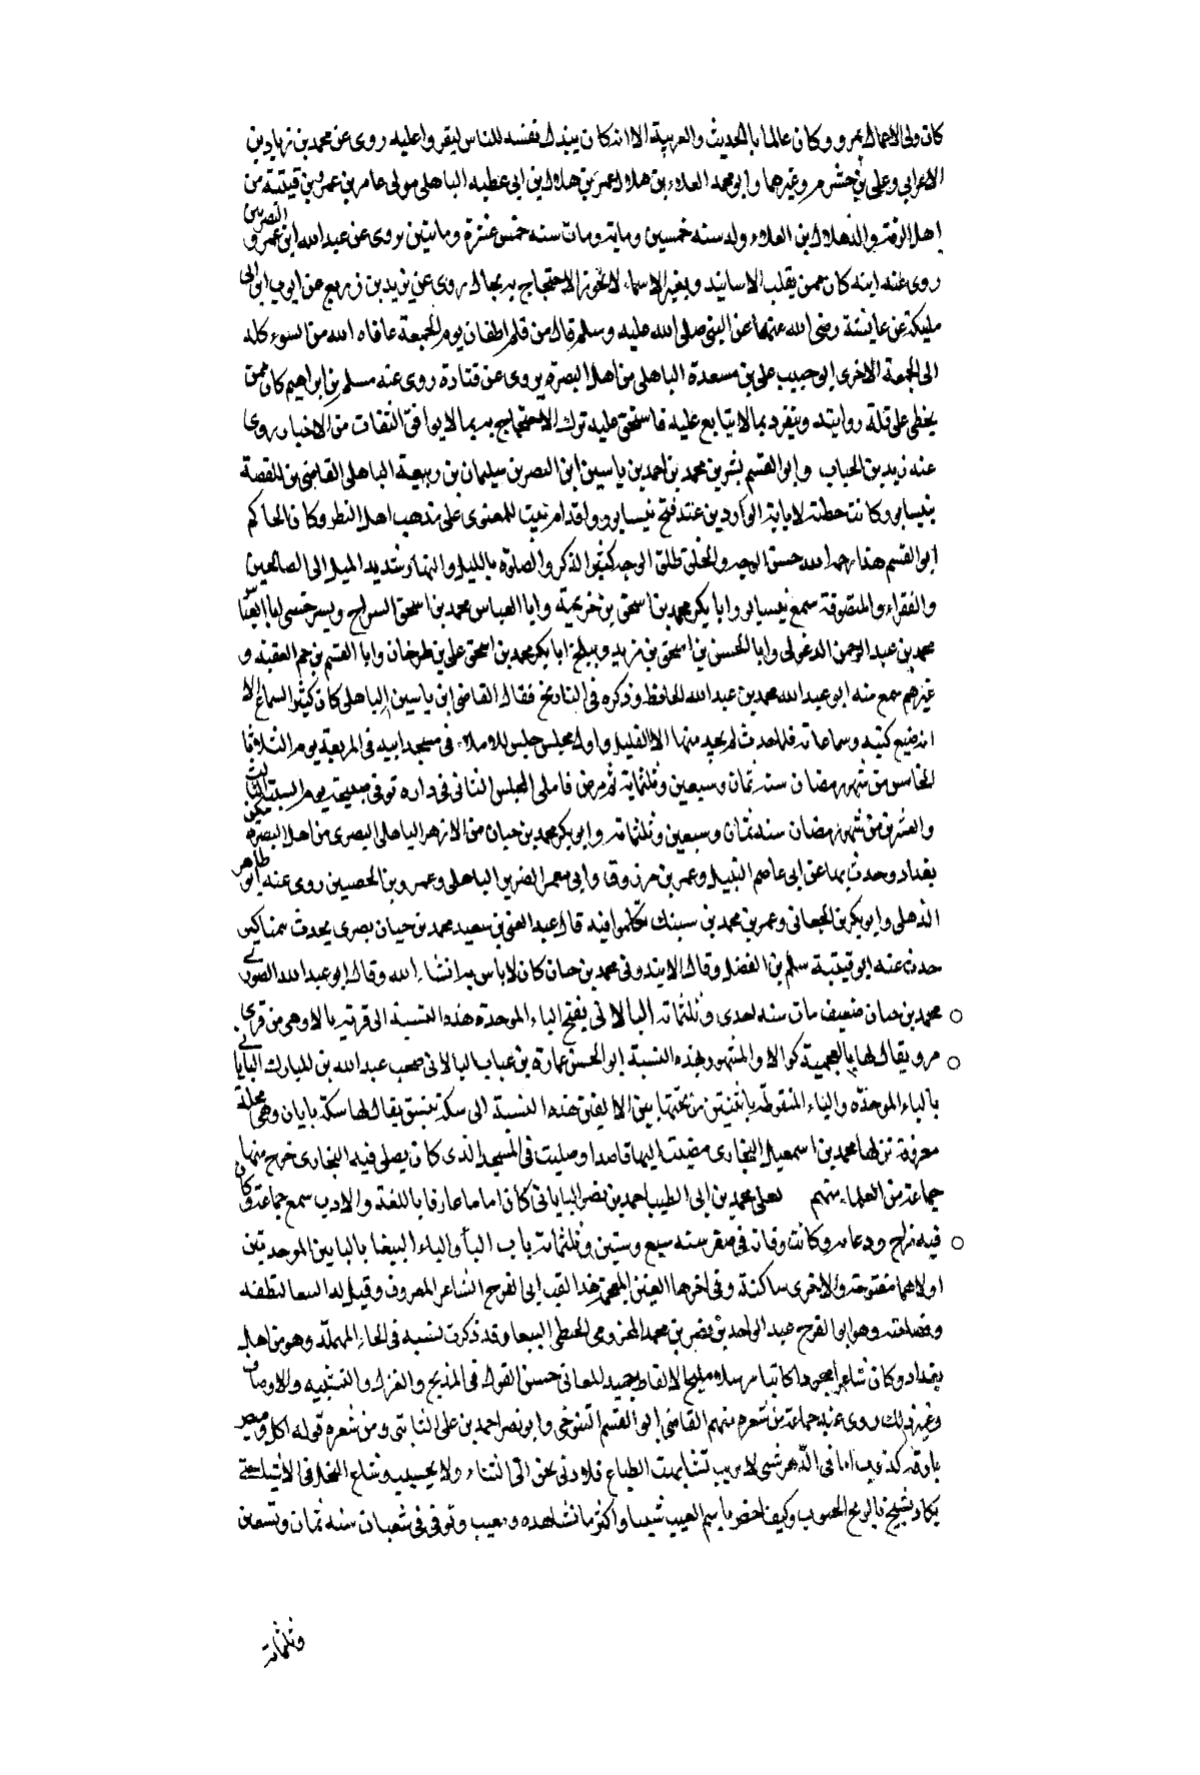 كان ولى الاعمال بمرو وكان عالما بالحديث والعربية الا انه كان يبذل نفسه للناس ليقروا عليه روى عن محمد بن زياد بن
الاعرابى وعلى بن خشرم وغيرهما وابو محمد العلاء بن هلال بن عمر بن هلال ابن ابى عطيه الباهلى مولى عامر بن عمرو بن قتيبة من
اهل الرقة والد هلال ابن العلاء ولد سنه خمسين وماية ومات سنه خمس عشرة وماتين يروى عن عبيد الله ابن عمرو البصريين
روى عنه ابنه كان ممن يقلب الاسانيد ويغير الاسماء لا يجوز الاحتجاج به بحال روى عن يزيد بن زريع عن ايوب ابن ابى
مليكة عن عايشة رضى الله عنها عن النبى صلى الله عليه وسلم قال من قلم اظفان يوم الجمعة عافاه الله من السوء كله
الى الجمعة الاخرى ابو حبيب على بن مسعدة الباهلى من اهل البصرة يروى عن قتادة روى عنه مسلم بن ابراهيم كان ممن
يخطى على قلة روايته وينفرد بما لا يتابع عليه فاستحق عليه ترك الاحتجاج به بما لا يوافق الثقات من الاخبار روى
عنه زيد بن الحباب وابو القسم بشر بن محمد بن احمد بن ياسين ابن النصر بن سليمان بن ربيعة الباهلى القاضى بن القصة
بنيسابور وكانت خطته لابايه الواردين عند فتح نيسابور واقدام بيت للمعنوى على مذهب اهل النظر وكان الحاكم
ابو القسم هذا رحمه الله حسن الوجه والخلق طلق الوجه كثير الذكر والصلوة بالليل والنهار شديد الميل الى الصالحين
والفقراء والمتصوفة سمع نيسابور ابا بكر محمد بن اسحق بن خزيمة وابا العباس محمد بن اسحق السراج وبسرخس ابا العباس
محمد بن عبد الرحمن الدغولى وابا الحسن بن اسحق بن يزيد وببلخ ابا بكر محمد بن اسحق على بن طرخان وابا القسم بن حم الفقيه و
غيرهم سمع منه ابو عبد الله محمد بن عبد الله الحافظ وذكره فى التاريخ فقال القاضى ابن ياسين الباهلى كان كثير السماع الا
انه ضيع كتبه وسماعاته فلما حدث لم يجد منها الا القليل واول مجلس جلس للاملاء فى مسجد ابيه فى المربعة يوم الثلاثا
الخامس من شهر رمضان سنه ثمان وسبعين وثلثماية ثم مرض فاملى المجلس الثانى فى داره توفى صبيحة يوم السبت الثالث
والعشرين من شهر رمضان سنه ثمان وسبعين وثلثمائة وابو بكر محمد بن حيان من الازهر الباهلى البصرى من اهل البصرة سكن
بغداد وحدث بها عن ابى عاصم النبيل وعمر بن مرزوقا وابى معمر الضرير الباهلى وعمرو بن الحصين روى عنه ابو طاهر
الذهلى وابو بكر بن الجعانى وعمر بن محمد بن سبنك تكلموا فيه قال عبد الغنى بن سعيد محمد بن حيان بصرى يحدث بمناكير
حدث عنه ابو قتيبة سلم بن الفضل وقال الابندونى محمد بن حيان كان لا باس به انشاء الله وقال ابو عبد الله الصورى
محمد بن حيان ضعيف مات سنه احدى وثلثمائة البالانى بفتح الباء الموحدة هذه النسبة الى قرية بالا وهى من قرى
مرو يقال لها بالعجمية كوالا والمشهور بهذه النسبة ابو الحسن عمارة بن عباب البالانى صحب عبد الله بن المبارك البايانى
بالباء الموحدة والياء المنقوطة باثنتين من تحتها بين الالفين هذه النسبة الى سكة بنسف يقال لها سكة بايان وهى محلة
معروفة نزلها محمد بن اسمعيل البخارى مضيت اليها قاصدا وصليت فى المسجد الذى كان يصلى فيه البخارى خرج منها
جماعة من العلماء منهم يعلى محمد بن ابى الطيب احمد بن نصر البايانى كان اماما عارفا باللغة والادب سمع جماعة وكان
فيه مزاح ودعابه وكانت وفاته فى صفر سنه سبع وستين وثلثمائة باب البأ والباء الببغا بالبايين الموحدتين
اولاهما مفتوحة والاخرى ساكنة وفى اخرها الغين المعجمة هذا لقب ابى الفرج الشاعر المعروف وقيل له الببغا لنطقه
وفصاحته وهو ابو الفرج عبد الواحد بن نصر بن محمد المخزومى الحنطى الببغا وقد ذكرت نسبه فى الحاء المهملة وهو من اهل
بغداد وكان شاعرا مجودا كاتبا مرسلا مليح الالفاظ جيد المعانى حسن القول فى المديح والغزل والتشبيه والاوصاف
وغير ذلك روى عنه جماعة من شعره منهم القاضى ابو القسم التنوخى وابو نصر احمد بن على الثابتى ومن شعره قوله اكل وميض
بارقه كذوب اما فى الدهر شى لا يريب تشابهت الطباع فلا دنى يحن الى الثناء ولا حسيب وشاع البخل فى الاشيا حتى
يكاد يشح بالريح الهبوب وكيف اخص باسم العيب شيئا واكثر ما نشاهده معيب وتوفى فى شعبان سنه ثمان وتسعين
وثلثمائة